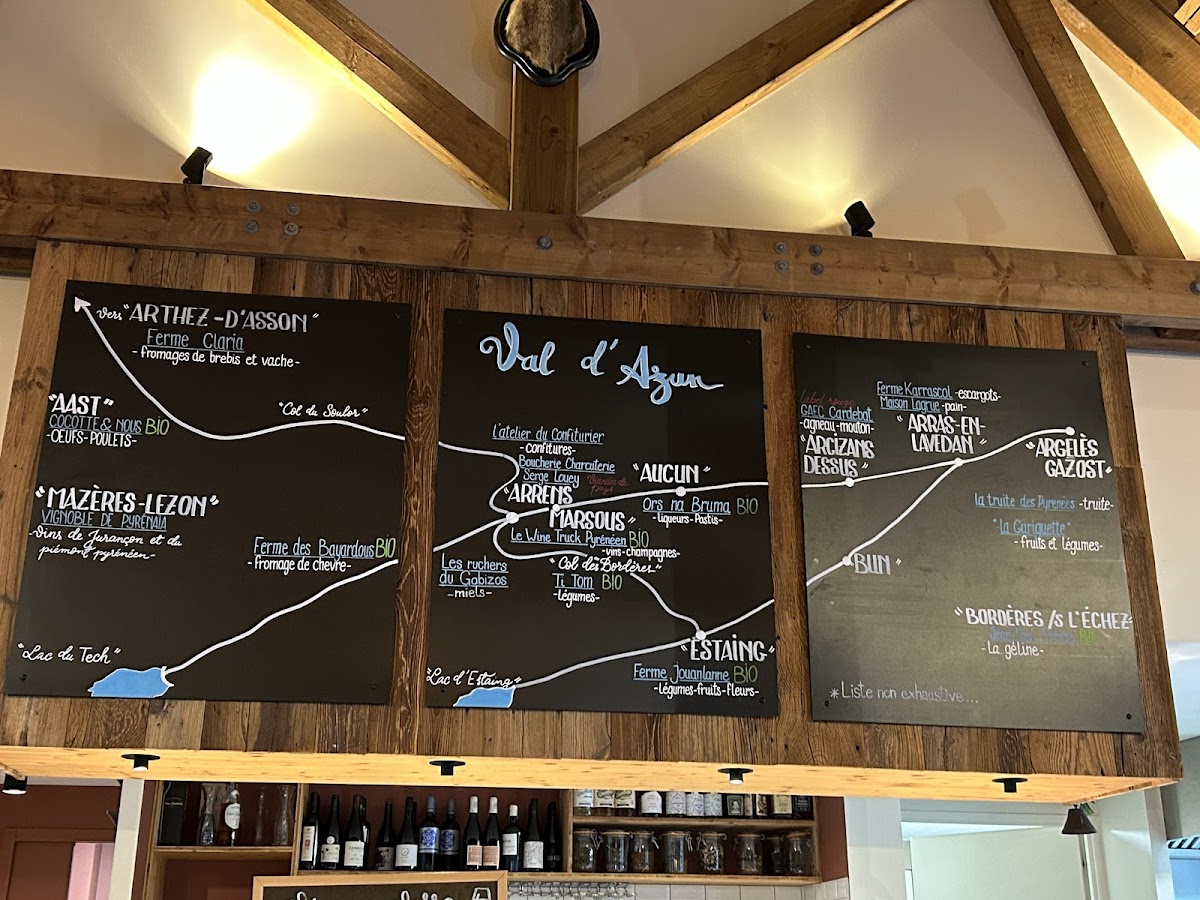 vers "ARTHEZ-D'ASSON"
Ferme Claria
-fromages de brebis et vache-
"AAST"
COCOTTE & NOUS BIO
-OEUFS-POULETS-
"Col du Soulor"
"MAZÈRES-LEZON"
VIGNOBLE DE PYRENAIA
-vins de Jurançon et du
piémont pyrénéen-
Ferme des Bayardous BIO
-fromage de chevre-
"Lac du Tech"
Val d'Azun
L'atelier du Confiturier
-confitures-
Boucherie Charcuterie
Serge Louey
Viandes de
pays
"ARRENS
MARSOUS"
"AUCUN"
Ors na Bruma BIO
-liqueurs-Pastis-
Le Wine Truck Pyrénéen BIO
-vins-champagnes-
Les ruchers
du Gabizos
-miels-
"Col des Bordères"
Ti Tom BIO
-légumes-
"ESTAING"
Ferme Jouanlanne BIO
-légumes-fruits-fleurs-
"Lac d'Estaing"
Label rouge
GAEC Cardebat
-agneau-mouton-
"ARCIZANS
DESSUS"
Ferme Karrascal -escargots-
Maison Lagrue -pain-
"ARRAS-EN-
LAVEDAN"
"ARGELÈS
GAZOST"
la truite des Pyrenées -truite-
"La Gariguette"
-fruits et légumes-
"BUN"
"BORDÈRES /s L'ÉCHEZ"
BIO
-La géline-
*Liste non exhaustive...